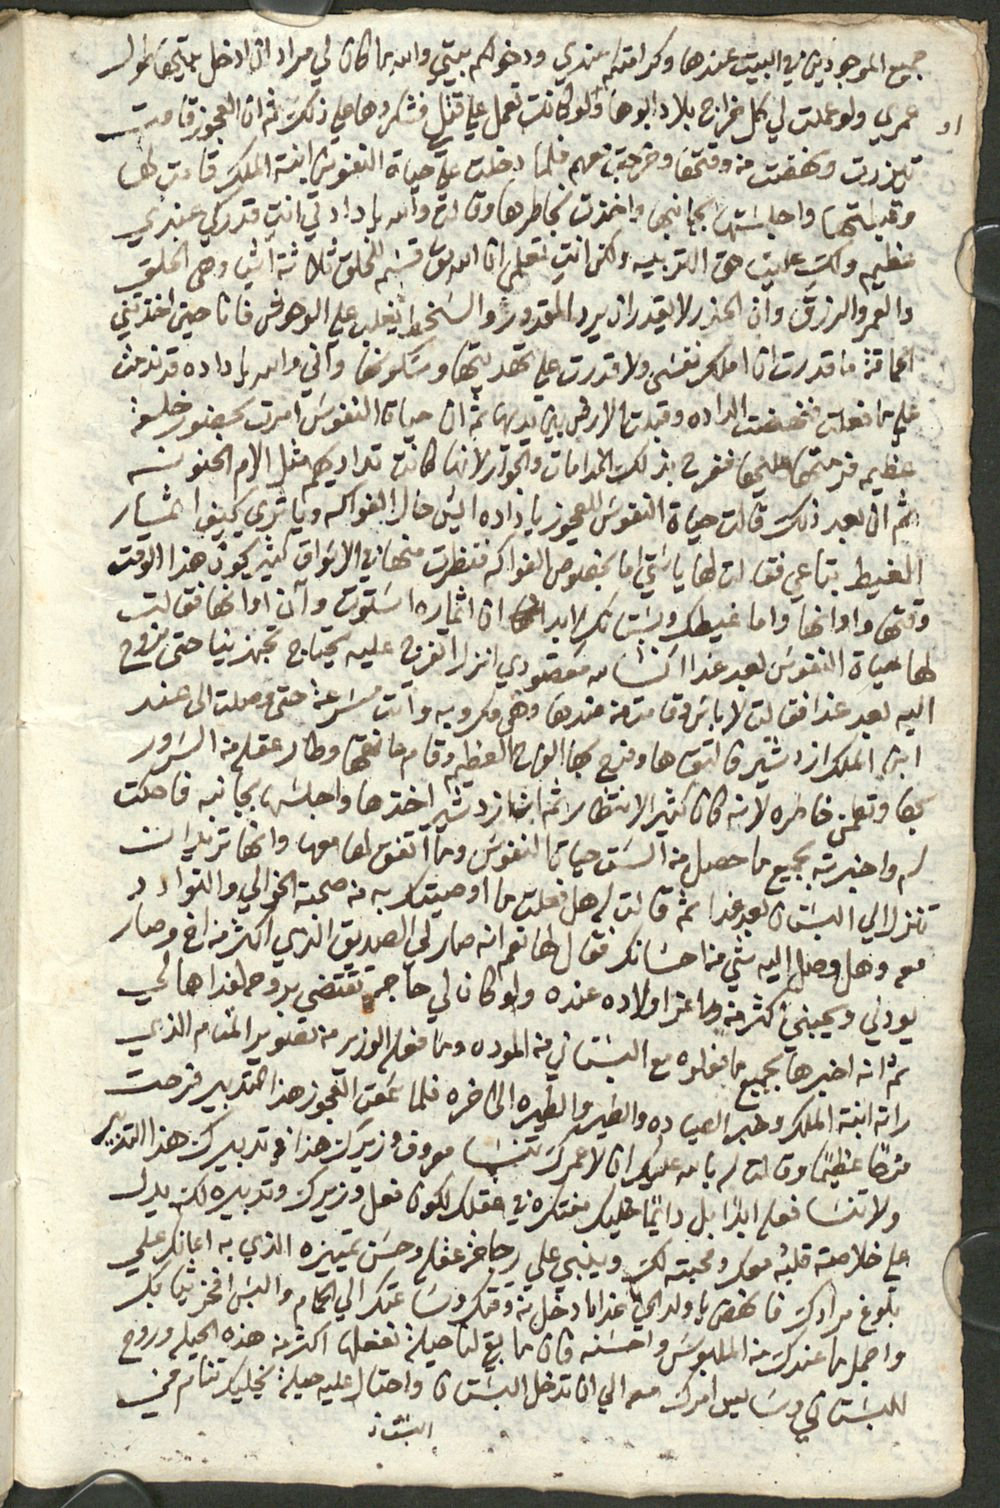 جميع الموجودين في البيت عندها وكرامتكم عندي ودخولكم بيتي والله ما كان لي مراد ان ادخل بيتها طول
عمري ولو عملت لي كل خراج بلاد ابوها ولو كانت تعمل علي قتلي فشكروها علي ذلك ثم ان العجوز قامت
تيزرت ونهضت من وقتها وخرجت معهم فلما دخلت علي حياة النفوس ابنة الملك قامت لها
وقبلتها واجلستها بجانبها واخذت بخاطرها وقالت والله يا دادتي انت قدرك عندي
عظيم ولك عليّ حق التربيه ولكن انت تعلمي ان الله تعالي قسم للخلق ثلاثة اشيا وهي الخلق
والعمر والرزق وان الحذر لا يقدر ان يرد المقدور والسخط يغلب علي الوهم فانا حين اخذتني
الحماقة ما قدرت ان املك نفسي ولا قدرت علي تهديتها وسكونها واني والله يا داده قد ندمت
علي ما فعلت فنهضت الداده وقبلت الارض بين يديها ثم ان حياة النفوس امرت بحضور خلعة
عظيمه فرمتها عليها ففرح بذلك الخدامات والجوار لانها كانت تداريهم مثل الام الحنونه
ثم ان بعد ذلك قالت حياة النفوس للعجوز يا داده ايش حال الفواكه ويا تري كيف اثمار
الغيط بتاعي فقالت لها يا ستي اما بخصوص الفواكه فنظرت منها في الاسواق كثير كون هذا الوقت
وقتها واوانها واما غيطك وبستانك لابد ان اثماره استوت وآن اوانها فقالت
لها حياة النفوس بعد غدا انشا الله مقصودي انزل اتفرج عليه يحتاج تجهزينا حتي نروح
اليه بعد غدا فقالت لا باس وقامت من عندها وهي مكروبه وآتت مسرعة حتي وصلت الي عند
ابن الملك ازدشير فالتقاها وفرح بها الفرح العظيم وقام عانقها وطار عقله من السرور
بها وتعلق خاطره لانه كان كثير الانتظار ثم ان ازدشير اخذها واجلسها بجانبه فاحكت
له واخبرته بجميع ما حصل من الست حياة النفوس وما اتفق لها معها وانها تريد ان
تنزل الي البستان بعد غدا ثم قالت له هل فعلت ما اوصيتك به من صحبة الخولي والتوادد
معه وهل وصل اليه شي من احسانك فقال لها نعم انه صار لي الصديق الذي اكثر من اخ وصار
يودني ويحبني اكثر من اعز اولاده عنده ولو كان لي حاجة تقتضي بروحه لفداها لي
ثم انه اخبرها بجميع ما فعلوه مع البستاني من الموده وما فعله الوزير من تصوير المنام الذي
راته ابنة الملك وخبر الصياده والطير والطيره الي اخره فلما سمعت العجوز هذا التدبير فرحت
فرحًا عظيمًا وقالت له بالله عليك ان لا عمرك تنسا معروف وزيرك هذا في تدبيرك هذا التدبير
ولا تنسا فعله ابدًا بل دايمًا خليك مفتكره في عقلك لكون فعل وزيرك وتدبيره لك يدل
علي خلاصة قلبه معك ومحبته لك وينبي علي رجاحة عقله وحسن تمييزه الذي به اعانك علي
بلوغ مرادك فانهض يا ولدي غدا ادخل من وقتك وساعتك الي الحمام والبس افخر ثيابك
واجمل ما عندك من الملبوس واحسنه فان ما بقي لنا حيلة نفعلها اكثر من هذه الحيله وروح
للبستاني وسايس امرك معه الي ان تدخل البستان واحتال عليه حيلة يخليك تنام في
البستان